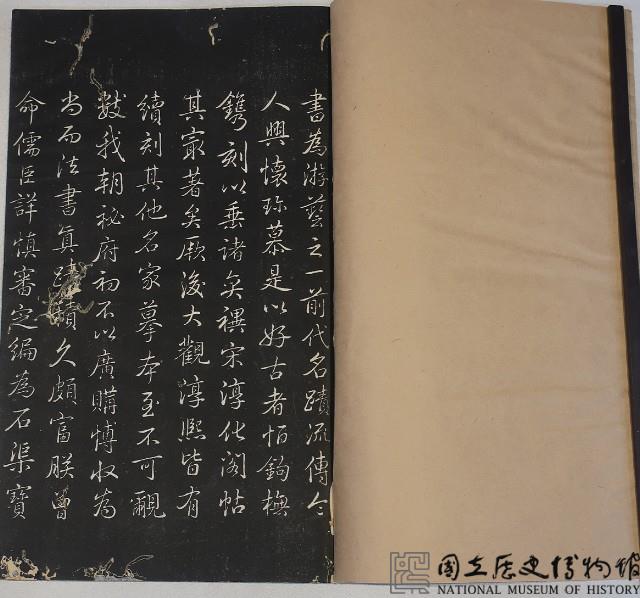 書為游藝之一前代名蹟流傳令
人興懷珍慕是以好古者恒鉤橅
鐫刻以垂諸矣禩宋淳化閣帖
其最著矣厥後大觀淳熙皆有
續刻其他名家摹本至不可覼
數我朝秘府初不以廣購愽收為
尚而法書真蹟積久頗富朕曾
命儒臣詳慎審定編為石渠寶
國立歷史博物館
NATIONAL MUSEUM OF HISTORY